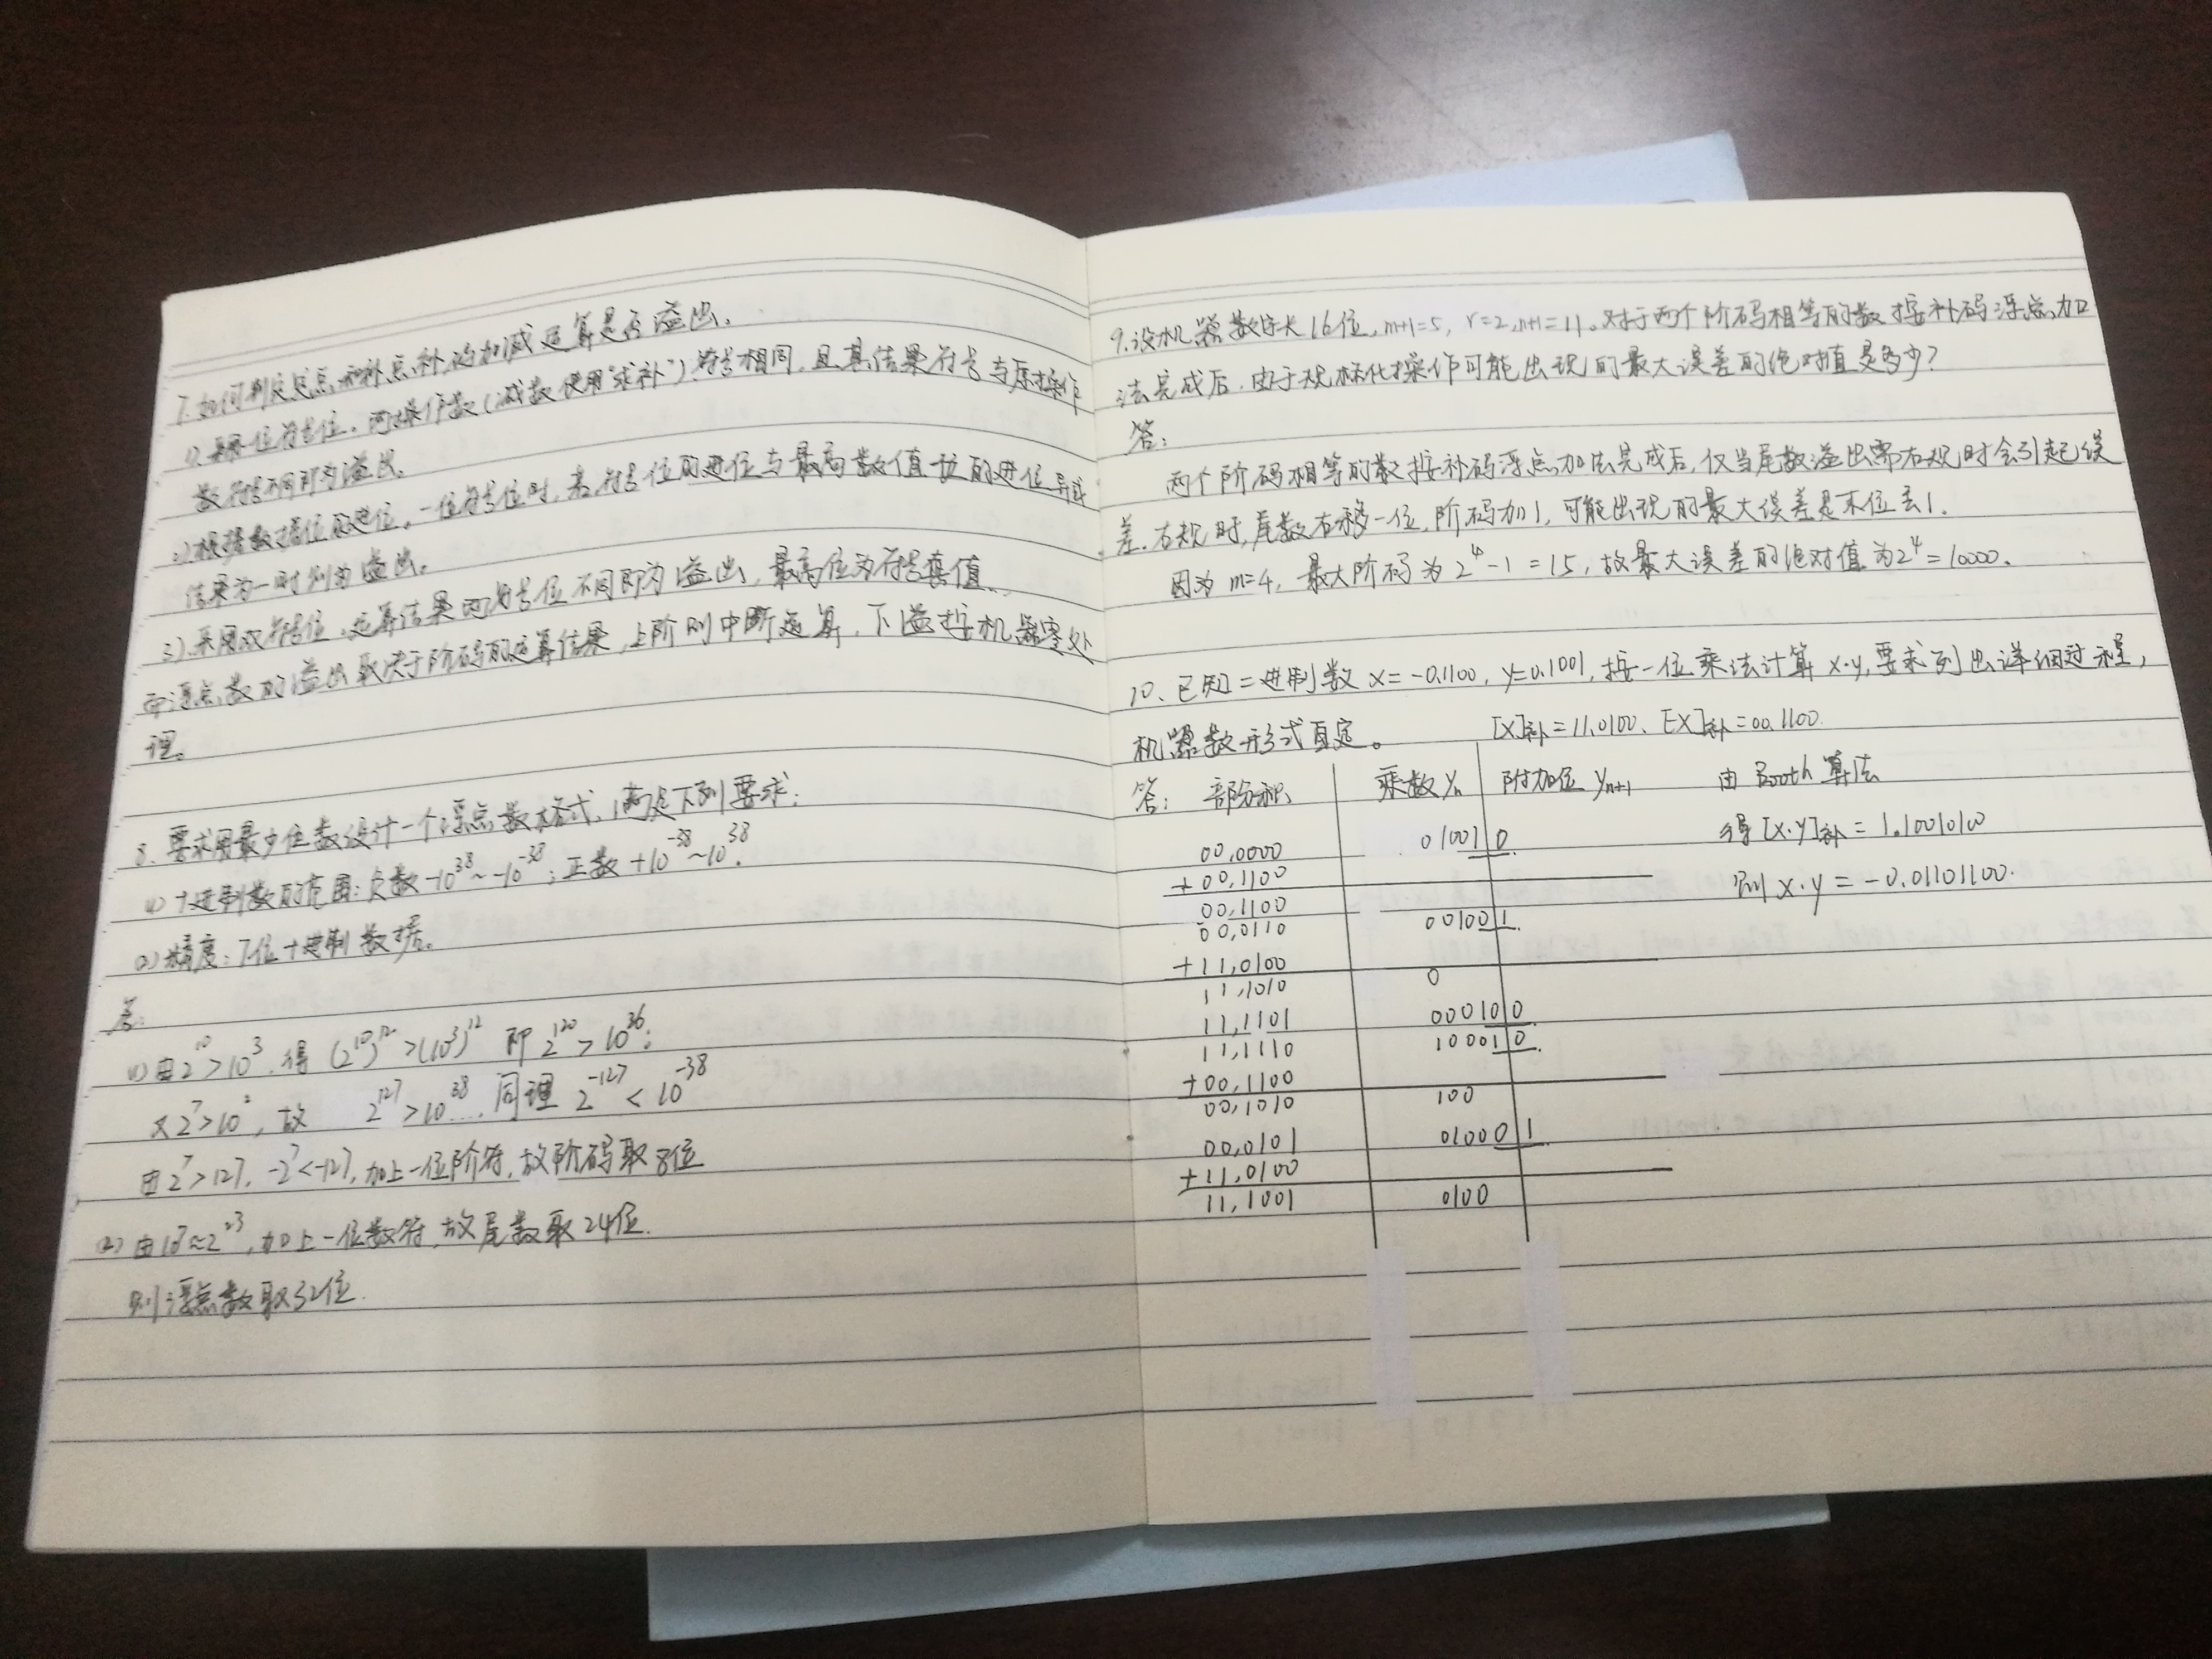 7.如何判定定点和补点补码加减运算是否溢出.
1).采用一位符号位。两操作数(减数使用"求补")符号相同,且其结果符号与原操作
数符号不同即为溢出.
2).根据数据位的进位。一位符号位时,若符号位的进位与最高数值位的进位异或
结果为一时则为溢出。
3).采用双符号位,运算结果两符号位不同即为溢出,最高位为符号真值.
浮点数的溢出取决于阶码的运算结果,上阶则中断运算.下溢按机器零处
理。
8、要求用最少位数设计一个浮点数格式,满足下列要求:
(1)十进制数的范围:负数-10^38~-10^-38;正数+10^-38~10^38.
(2)精度:7位十进制数据。
答:
(1)由2^10>10^3.得(2^10)^12>(10^3)^12 即2^120>10^36;
又2^7>10^2,故 2^127>10^38....同理2^-127<10^-38
由2^7>127,-2^7<-127,加上一位阶符,故阶码取8位
(2)由10^7≈2^23,加上一位数符,故尾数取24位.
则浮点数取32位.
9.设机器数字长16位,m+1=5,r=2,n+1=11。对于两个阶码相等的数按补码浮点加
法完成后,由于规标化操作可能出现的最大误差的绝对值是多少?
答:
两个阶码相等的数按补码浮点加法完成后,仅当尾数溢出需右规时会引起误
差.右规时,尾数右移一位,阶码加1,可能出现的最大误差是末位丢1.
因为m=4,最大阶码为2^4-1=15,故最大误差的绝对值为2^4=10000.
10、已知二进制数x=-0.1100,y=0.1001,按一位乘法计算x·y,要求列出详细过程,
机器数形式自定。 [X]补=11.0100、[X]补=00.1100.
答: 部份积 乘数yn 附加位yn+1 由Booth算法
00,0000 01001 0 得[X·Y]补=1.1001010
+00,1100 则x·y=-0.01101100.
00,1100
00,0110 00100 1
+11,0100
11,1010 0
11,1101 00010 0
11,1110 10001 0
+00,1100
00,1010 100
00,0101 01000 1
+11,0100
11,1001 0100